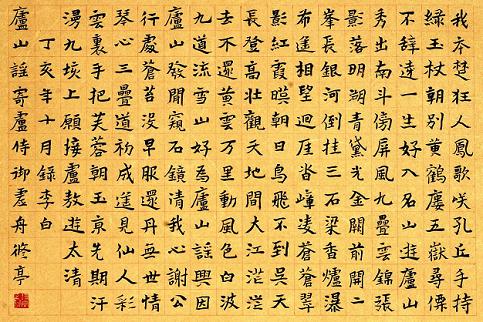 我本楚狂人鳳歌咲孔丘手持
綠玉杖朝別黄鶴廔五嶽尋僊
不辞逺一生好入名山遊廬山
秀出南斗傍屏風九疊雲錦張
影落明湖青黛光金闕前開二
峯長銀河倒挂三石梁香爐瀑
布遙相朢迴崖沓嶂凌蒼蒼翠
影紅霞暎朝日鳥飛不到吳天
長登高壯觀天地間大江茫茫
去不還黄雲万里動風色白波
九道流雪山好為廬山謡興因
廬山發閒窺石鏡清我心謝公
行處蒼苔沒早服還丹無世情
琴心三疊道初成遙見仙人彩
雲裏手把芙蓉朝玉京先期汗
漫九垓上願接盧敖遊太清
丁亥年十月録李白
廬山謡寄廬侍御虗舟亭